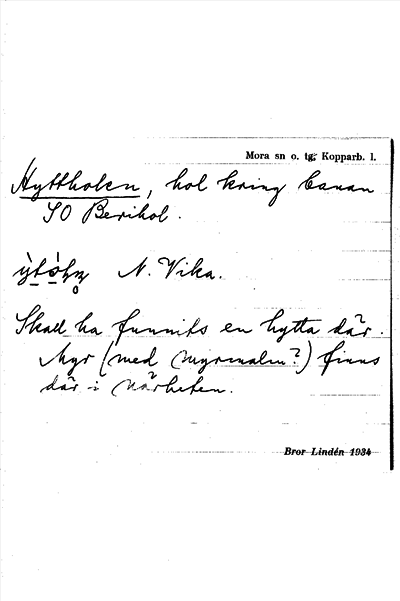 Mora sn o. tg; Kopparb. l.
Hyttholen, hol kring banan
SO Berihol.
N. Vika.
Skall ha funnits en hytta där.
Myr (med myrmalm?) finns
där i närheten.
Bror Lindén 1934